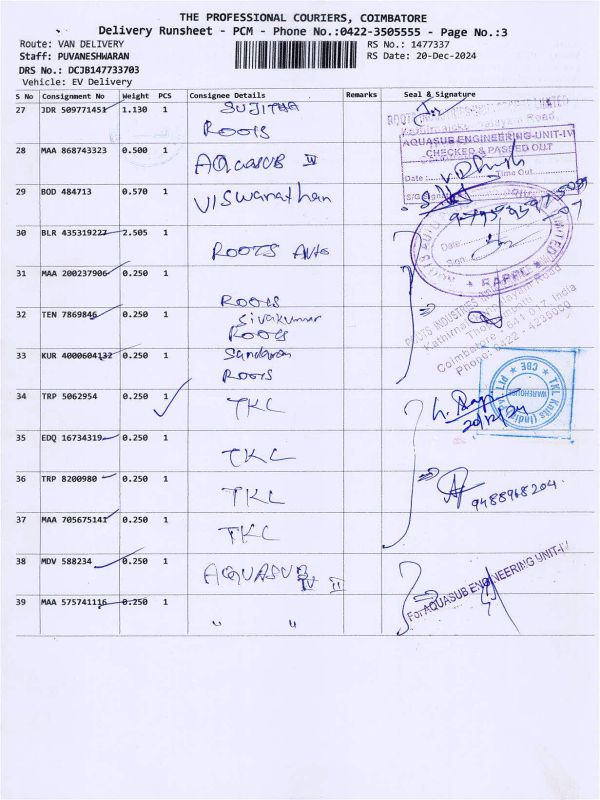 THE PROFESSIONAL COURIERS, COIMBATORE
Delivery Runsheet - PCM - Phone No.:0422-3505555 - Page No.:3
Route: VAN DELIVERY
RS No.: 1477337
Staff: PUVANESHWARAN
RS Date: 20-Dec-2024
DRS No.: DCJB147733703
Vehicle: EV Delivery
S No Consignment No Weight PCS Consignee Details Remarks Seal & Signature
27 JDR 509771451 1.130 1 SUJITHA
ROOTS
28 MAA 868743323 0.500 1 AQUASUB IV
AQUASUB ENGINEERING-UNIT-IV
CHECKED & PASSED OUT
Date : Time Out
29 BOD 484713 0.570 1 Viswanathan
30 BLR 435319227 2.505 1 ROOTS Auto
Date
Sign
31 MAA 200237906 0.250 1 ROOTS
ROOTS INDUSTRIES
32 TEN 7869846 0.250 1 Sivakumar
ROOTS
Coimbatore - 641 017, India
Phone: 0422 - 4235050
33 KUR 4000604132 0.250 1 Sundaran
ROOTS
34 TRP 5062954 0.250 1 TKL
20/12/24
TKL Knits (India) CBE
WAREHOUSE
35 EDQ 16734319 0.250 1 TKL
36 TRP 8200980 0.250 1 TKL
9488968204
37 MAA 705675141 0.250 1 TKL
38 MDV 588234 0.250 1 AQUASUB IV II
For AQUASUB ENGINEERING UNIT-IV
39 MAA 575741116 0.250 1 " "